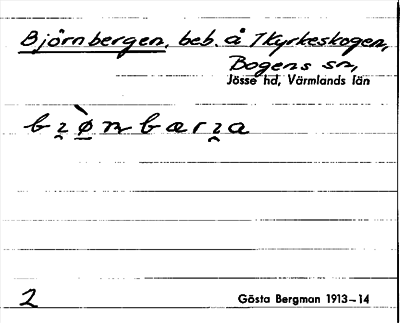 Björnbergen, beb. å Kyrkeskogen,
Bogens sn,
Jösse hd, Värmlands län
2
Gösta Bergman 1913–14